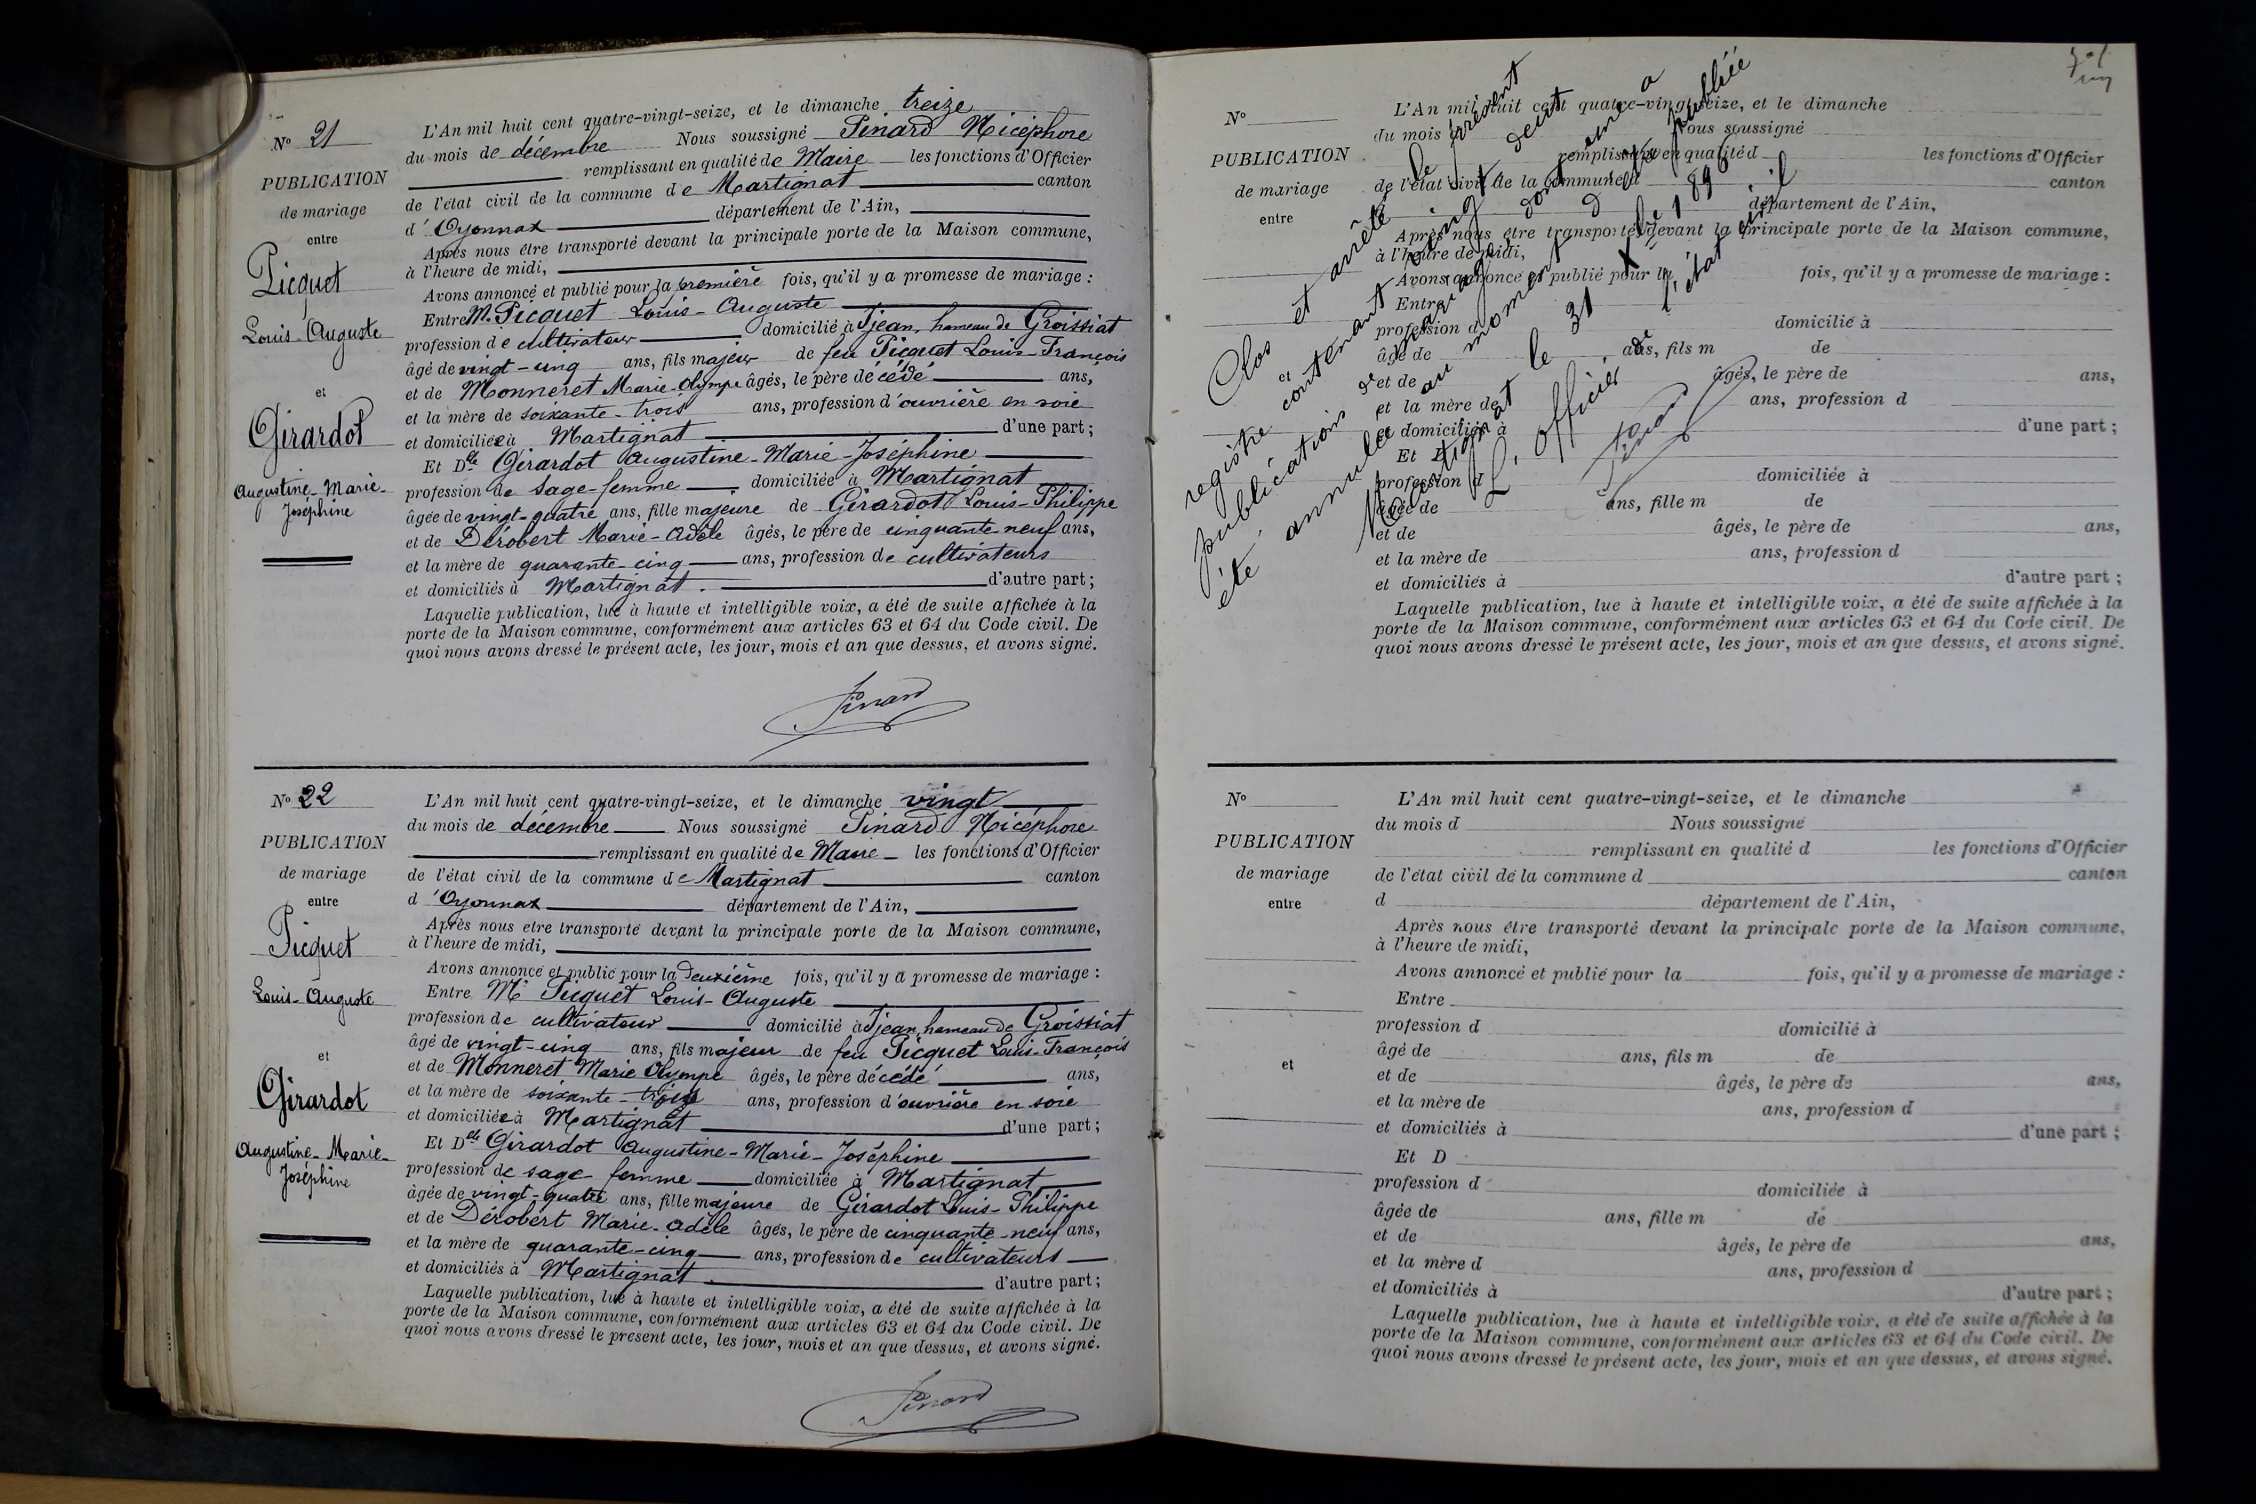 N° 21
PUBLICATION
de mariage
entre
Picquet
Louis-Auguste
et
Girardot
Augustine-Marie-
Joséphine
L'An mil huit cent quatre-vingt-seize, et le dimanche treize
du mois de décembre Nous soussigné Pinard Nicéphore
remplissant en qualité de Maire les fonctions d'Officier
de l'état civil de la commune de Martignat canton
d'Oyonnax département de l'Ain,
Après nous être transporté devant la principale porte de la Maison commune,
à l'heure de midi,
Avons annoncé et publié pour la première fois, qu'il y a promesse de mariage :
Entre M. Picquet Louis-Auguste
profession de cultivateur domicilié à Ijean, hameau de Groissiat
âgé de vingt-cinq ans, fils majeur de feu Picquet Louis-François
et de Monneret Marie-Olympe âgés, le père décédé ans,
et la mère de soixante-trois ans, profession d'ouvrière en soie
et domiciliée à Martignat d'une part ;
Et Dlle Girardot Augustine-Marie-Joséphine
profession de sage-femme domiciliée à Martignat
âgée de vingt-quatre ans, fille majeure de Girardot Louis-Philippe
et de Dérobert Marie-Adèle âgés, le père de cinquante neuf ans,
et la mère de quarante-cinq ans, profession de cultivateurs
et domiciliés à Martignat. d'autre part ;
Laquelle publication, lue à haute et intelligible voix, a été de suite affichée à la
porte de la Maison commune, conformément aux articles 63 et 64 du Code civil. De
quoi nous avons dressé le présent acte, les jour, mois et an que dessus, et avons signé.
Pinard
N° 22
PUBLICATION
de mariage
entre
Picquet
Louis-Auguste
et
Girardot
Augustine-Marie-
Joséphine
L'An mil huit cent quatre-vingt-seize, et le dimanche vingt
du mois de décembre Nous soussigné Pinard Nicéphore
remplissant en qualité de Maire les fonctions d'Officier
de l'état civil de la commune de Martignat canton
d'Oyonnax département de l'Ain,
Après nous etre transporté devant la principale porte de la Maison commune,
à l'heure de midi,
Avons annoncé et publié pour la deuxième fois, qu'il y a promesse de mariage :
Entre Mr Picquet Louis-Auguste
profession de cultivateur domicilié à Ijean, hameau de Groissiat
âgé de vingt-cinq ans, fils majeur de feu Picquet Louis-François
et de Monneret Marie Olympe âgés, le père décédé ans,
et la mère de soixante-trois ans, profession d'ouvrière en soie
et domiciliée à Martignat d'une part ;
Et Dlle Girardot Augustine-Marie-Joséphine
profession de sage-femme domiciliée à Martignat
âgée de vingt-quatre ans, fille majeure de Girardot Louis-Philippe
et de Dérobert Marie-Adèle âgés, le père de cinquante-neuf ans,
et la mère de quarante-cinq ans, profession de cultivateurs
et domiciliés à Martignat. d'autre part ;
Laquelle publication, lue à haute et intelligible voix, a été de suite affichée à la
porte de la Maison commune, conformément aux articles 63 et 64 du Code civil. De
quoi nous avons dressé le présent acte, les jour, mois et an que dessus, et avons signé.
Pinard
Clos et arrêté le présent
registre contenant vingt deux
publications de mariage dont une a
été annulée au moment d'être publiée
Martignat le 31 Xbre 1896
L'officier de l'état civil
Pinard
N°
PUBLICATION
de mariage
entre
et
L'An mil huit cent quatre-vingt-seize, et le dimanche
du mois d Nous soussigné
remplissant en qualité d les fonctions d'Officier
de l'état civil de la commune d canton
département de l'Ain,
Après nous être transporté devant la principale porte de la Maison commune,
à l'heure de midi,
Avons annoncé et publié pour la fois, qu'il y a promesse de mariage :
Entre
profession d domicilié à
âgé de ans, fils m de
et de âgés, le père de ans,
et la mère de ans, profession d
et domiciliés à d'une part ;
Et D
profession d domiciliée à
âgée de ans, fille m de
et de âgés, le père de ans,
et la mère de ans, profession d
et domiciliés à d'autre part ;
Laquelle publication, lue à haute et intelligible voix, a été de suite affichée à la
porte de la Maison commune, conformément aux articles 63 et 64 du Code civil. De
quoi nous avons dressé le présent acte, les jour, mois et an que dessus, et avons signé.
N°
PUBLICATION
de mariage
entre
et
L'An mil huit cent quatre-vingt-seize, et le dimanche
du mois d Nous soussigné
remplissant en qualité d les fonctions d'Officier
de l'état civil de la commune d canton
d département de l'Ain,
Après nous être transporté devant la principale porte de la Maison commune,
à l'heure de midi,
Avons annoncé et publié pour la fois, qu'il y a promesse de mariage :
Entre
profession d domicilié à
âgé de ans, fils m de
et de âgés, le père de ans,
et la mère de ans, profession d
et domiciliés à d'une part ;
Et D
profession d domiciliée à
âgée de ans, fille m de
et de âgés, le père de ans,
et la mère d ans, profession d
et domiciliés à d'autre part ;
Laquelle publication, lue à haute et intelligible voix, a été de suite affichée à la
porte de la Maison commune, conformément aux articles 63 et 64 du Code civil. De
quoi nous avons dressé le présent acte, les jour, mois et an que dessus, et avons signé.